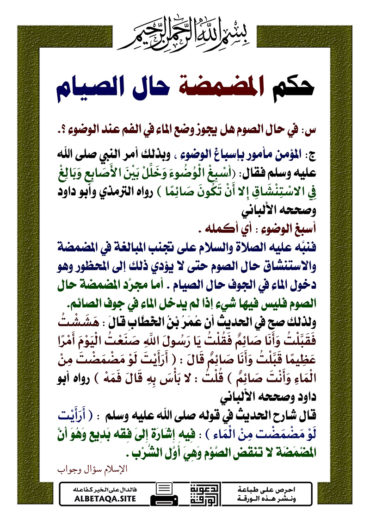 بسم الله الرحمن الرحيم
حكم المضمضة حال الصيام
س: في حال الصوم هل يجوز وضع الماء في الفم عند الوضوء ؟.
ج: المؤمن مأمور بإسباغ الوضوء ، وبذلك أمر النبي صلى الله
عليه وسلم فقال: (أَسْبِغْ الْوُضُوءَ وَخَلِّلْ بَيْنَ الأَصَابِعِ وَبَالِغْ
فِي الاسْتِنْشَاقِ إِلا أَنْ تَكُونَ صَائِمًا ) رواه الترمذي وأبو داود
وصححه الألباني
أسبغ الوضوء : أي أكمله .
فنبّه عليه الصلاة والسلام على تجنب المبالغة في المضمضة
والاستنشاق حال الصوم حتى لا يؤدي ذلك إلى المحظور وهو
دخول الماء في الجوف حال الصيام . أما مجرّد المضمضة حال
الصوم فليس فيها شيء إذا لم يدخل الماء في جوف الصائم.
ولذلك صح في الحديث أن عُمَرَ بْنَ الْخَطَّابِ قَالَ : هَشَشْتُ
فَقَبَّلْتُ وَأَنَا صَائِمٌ فَقُلْتُ يَا رَسُولَ اللَّهِ صَنَعْتُ الْيَوْمَ أَمْرًا
عَظِيمًا قَبَّلْتُ وَأَنَا صَائِمٌ قَالَ : ( أَرَأَيْتَ لَوْ مَضْمَضْتَ مِنْ
الْمَاءِ وَأَنْتَ صَائِمٌ ) قُلْتُ : لا بَأْسَ بِهِ قَالَ فَمَهْ ) رواه أبو
داود وصححه الألباني
قال شارح الحديث في قوله صلى الله عليه وسلم : ( أَرَأَيْت
لَوْ مَضْمَضْت مِنْ الْمَاء ) : فِيهِ إِشَارَة إِلَى فِقْه بَدِيع وَهُوَ أَنَّ
الْمَضْمَضَة لا تَنْقُض الصَّوْم وَهِيَ أَوَّل الشُّرْب .
الإسلام سؤال وجواب
احرص على طباعة
ونشر هذه الورقة
الورقة
الدعوية
فالدال على الخير كفاعله
ALBETAQA.SITE